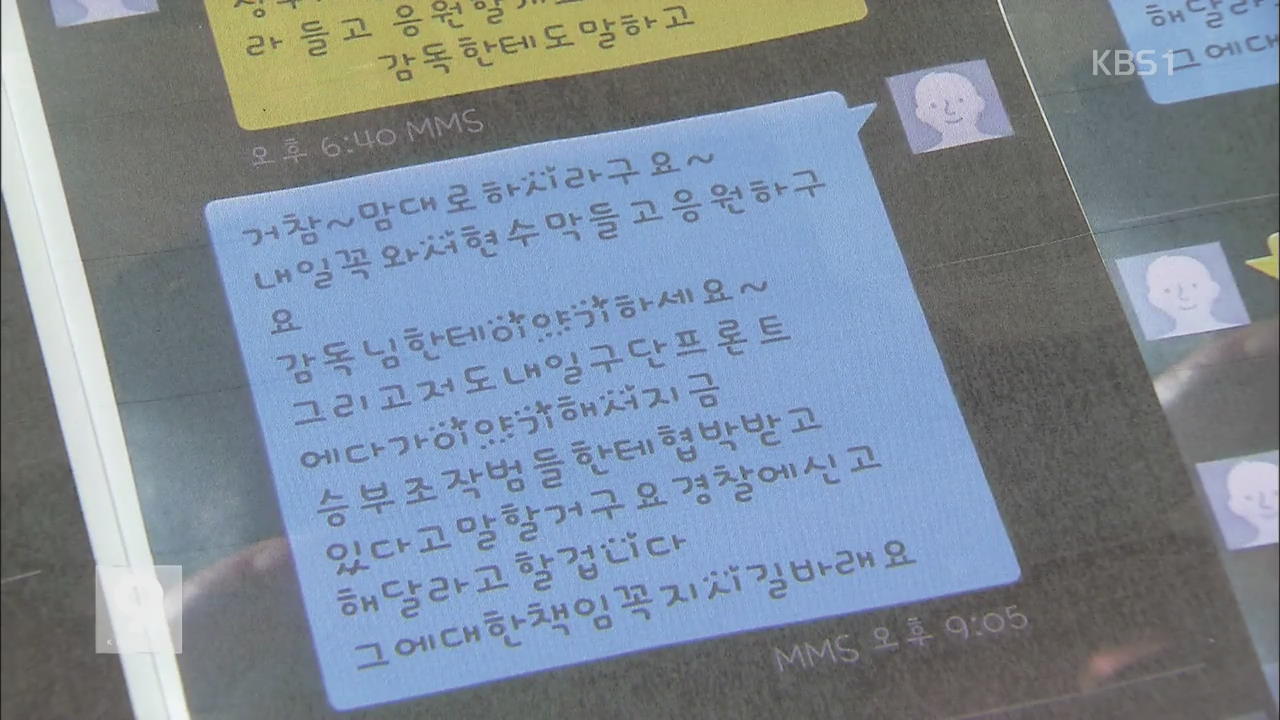 라 들고 응원할게
감독한테도말하고
오후 6:40 MMS
KBS1
해달라
그에대
거참~맘대로하시라구요~
내일꼭와서현수막들고응원하구
요
감독님한테이야기하세요~
그리고저도내일구단프론트
에다가이야기해서지금
승부조작범들한테협박받고
있다고말할거구요경찰에신고
해달라고할겁니다
그에대한책임꼭지시길바래요
MMS 오후 9:05
9